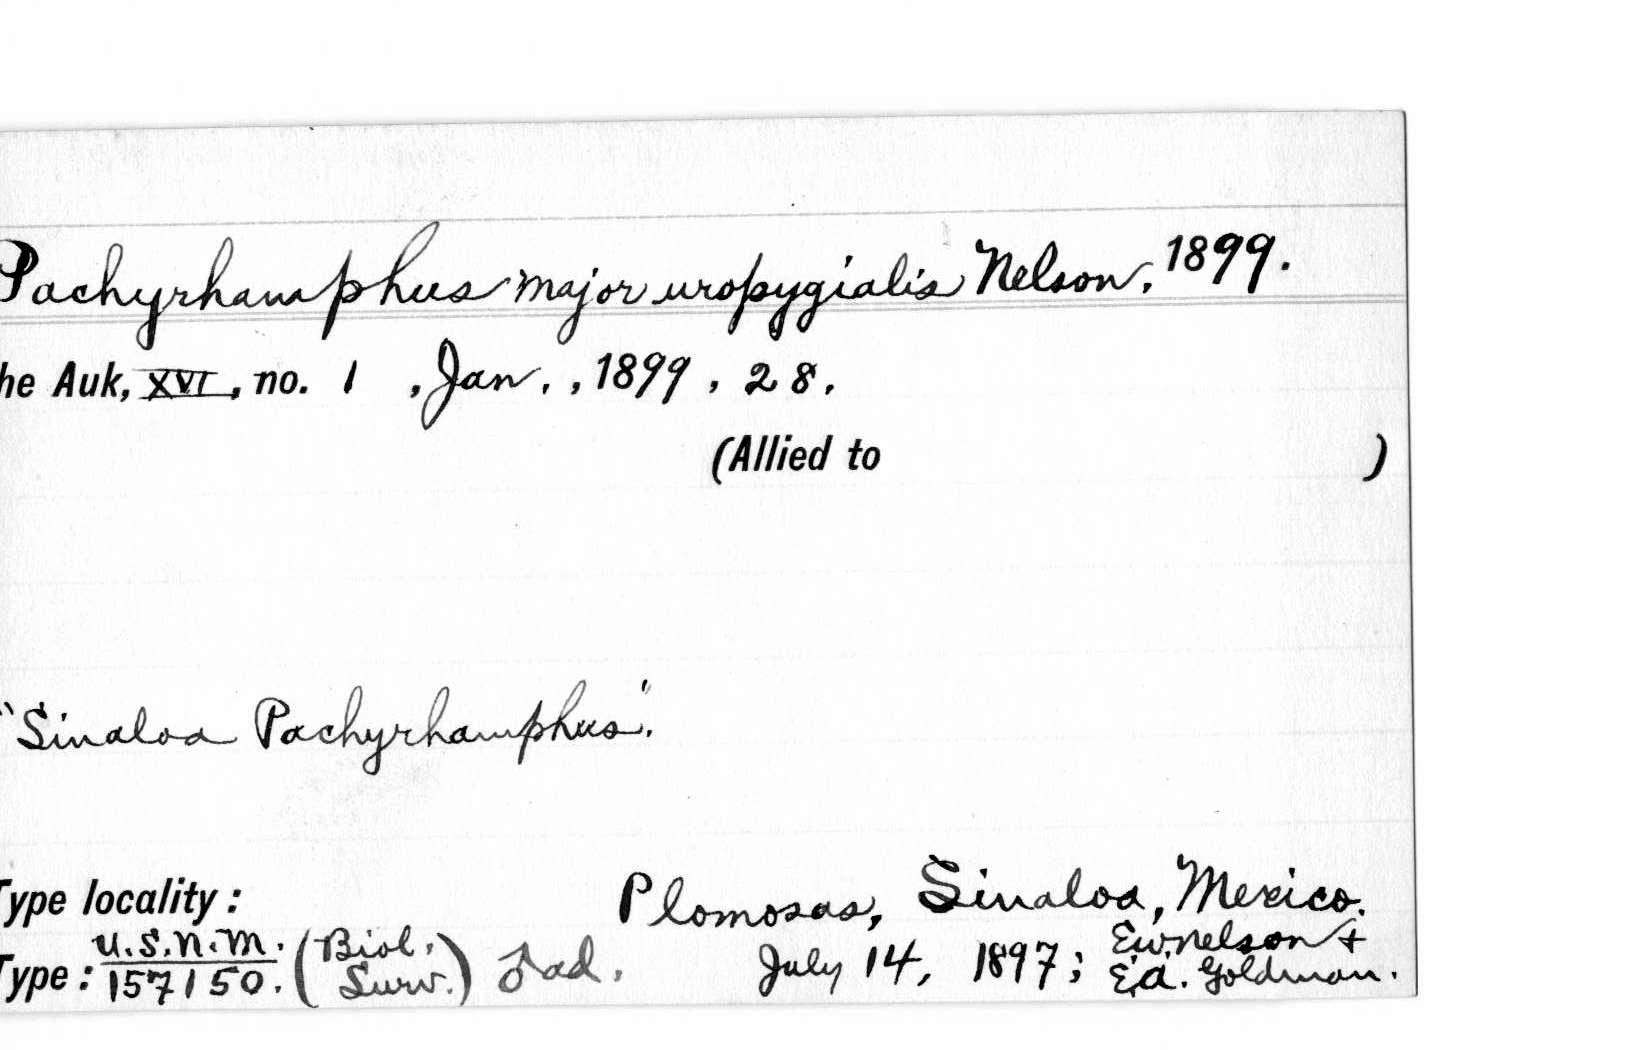 Pachyrhamphus major uropygialis Nelson, 1899.
he Auk, XVI, no. 1, Jan., 1899, 28.
(Allied to )
"Sinaloa Pachyrhamphus".
Type locality: Plomosas, Sinaloa, Mexico.
Type: U.S.N.M. 157150. (Biol. Surv.) ♂ ad. July 14, 1897; E.W. Nelson + E.A. Goldman.